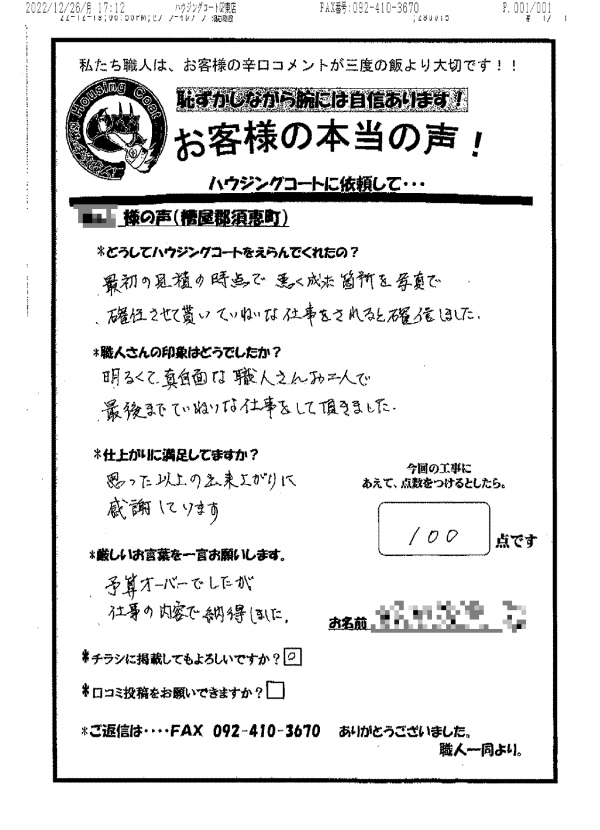 2022/12/26/月 17:12 ハウジングコートGP東店 FAX番号:092-410-3670 P.001/001
私たち職人は、お客様の辛口コメントが三度の飯より大切です！！
Housing Coat
恥ずかしながら腕には自信あります！
お客様の本当の声！
ハウジングコートに依頼して・・・
様の声(糟屋郡須恵町)
*どうしてハウジングコートをえらんでくれたの？
最初の見積の時点で 悪く成った箇所を写真で
確認させて貰い ていねいな仕事をされると確信しました.
*職人さんの印象はどうでしたか？
明るくて 真面目な 職人さんお二人で
最後までていねいな仕事をして頂きました.
*仕上がりに満足してますか？
思った以上の出来上がりに
感謝しています
今回の工事に
あえて、点数をつけるとしたら。
100 点です
*厳しいお言葉を一言お願いします。
予算オーバーでしたが
仕事の内容で納得しました.
お名前
*チラシに掲載してもよろしいですか？
*口コミ投稿をお願いできますか？
*ご返信は・・・・FAX 092-410-3670 ありがとうございました。
職人一同より。